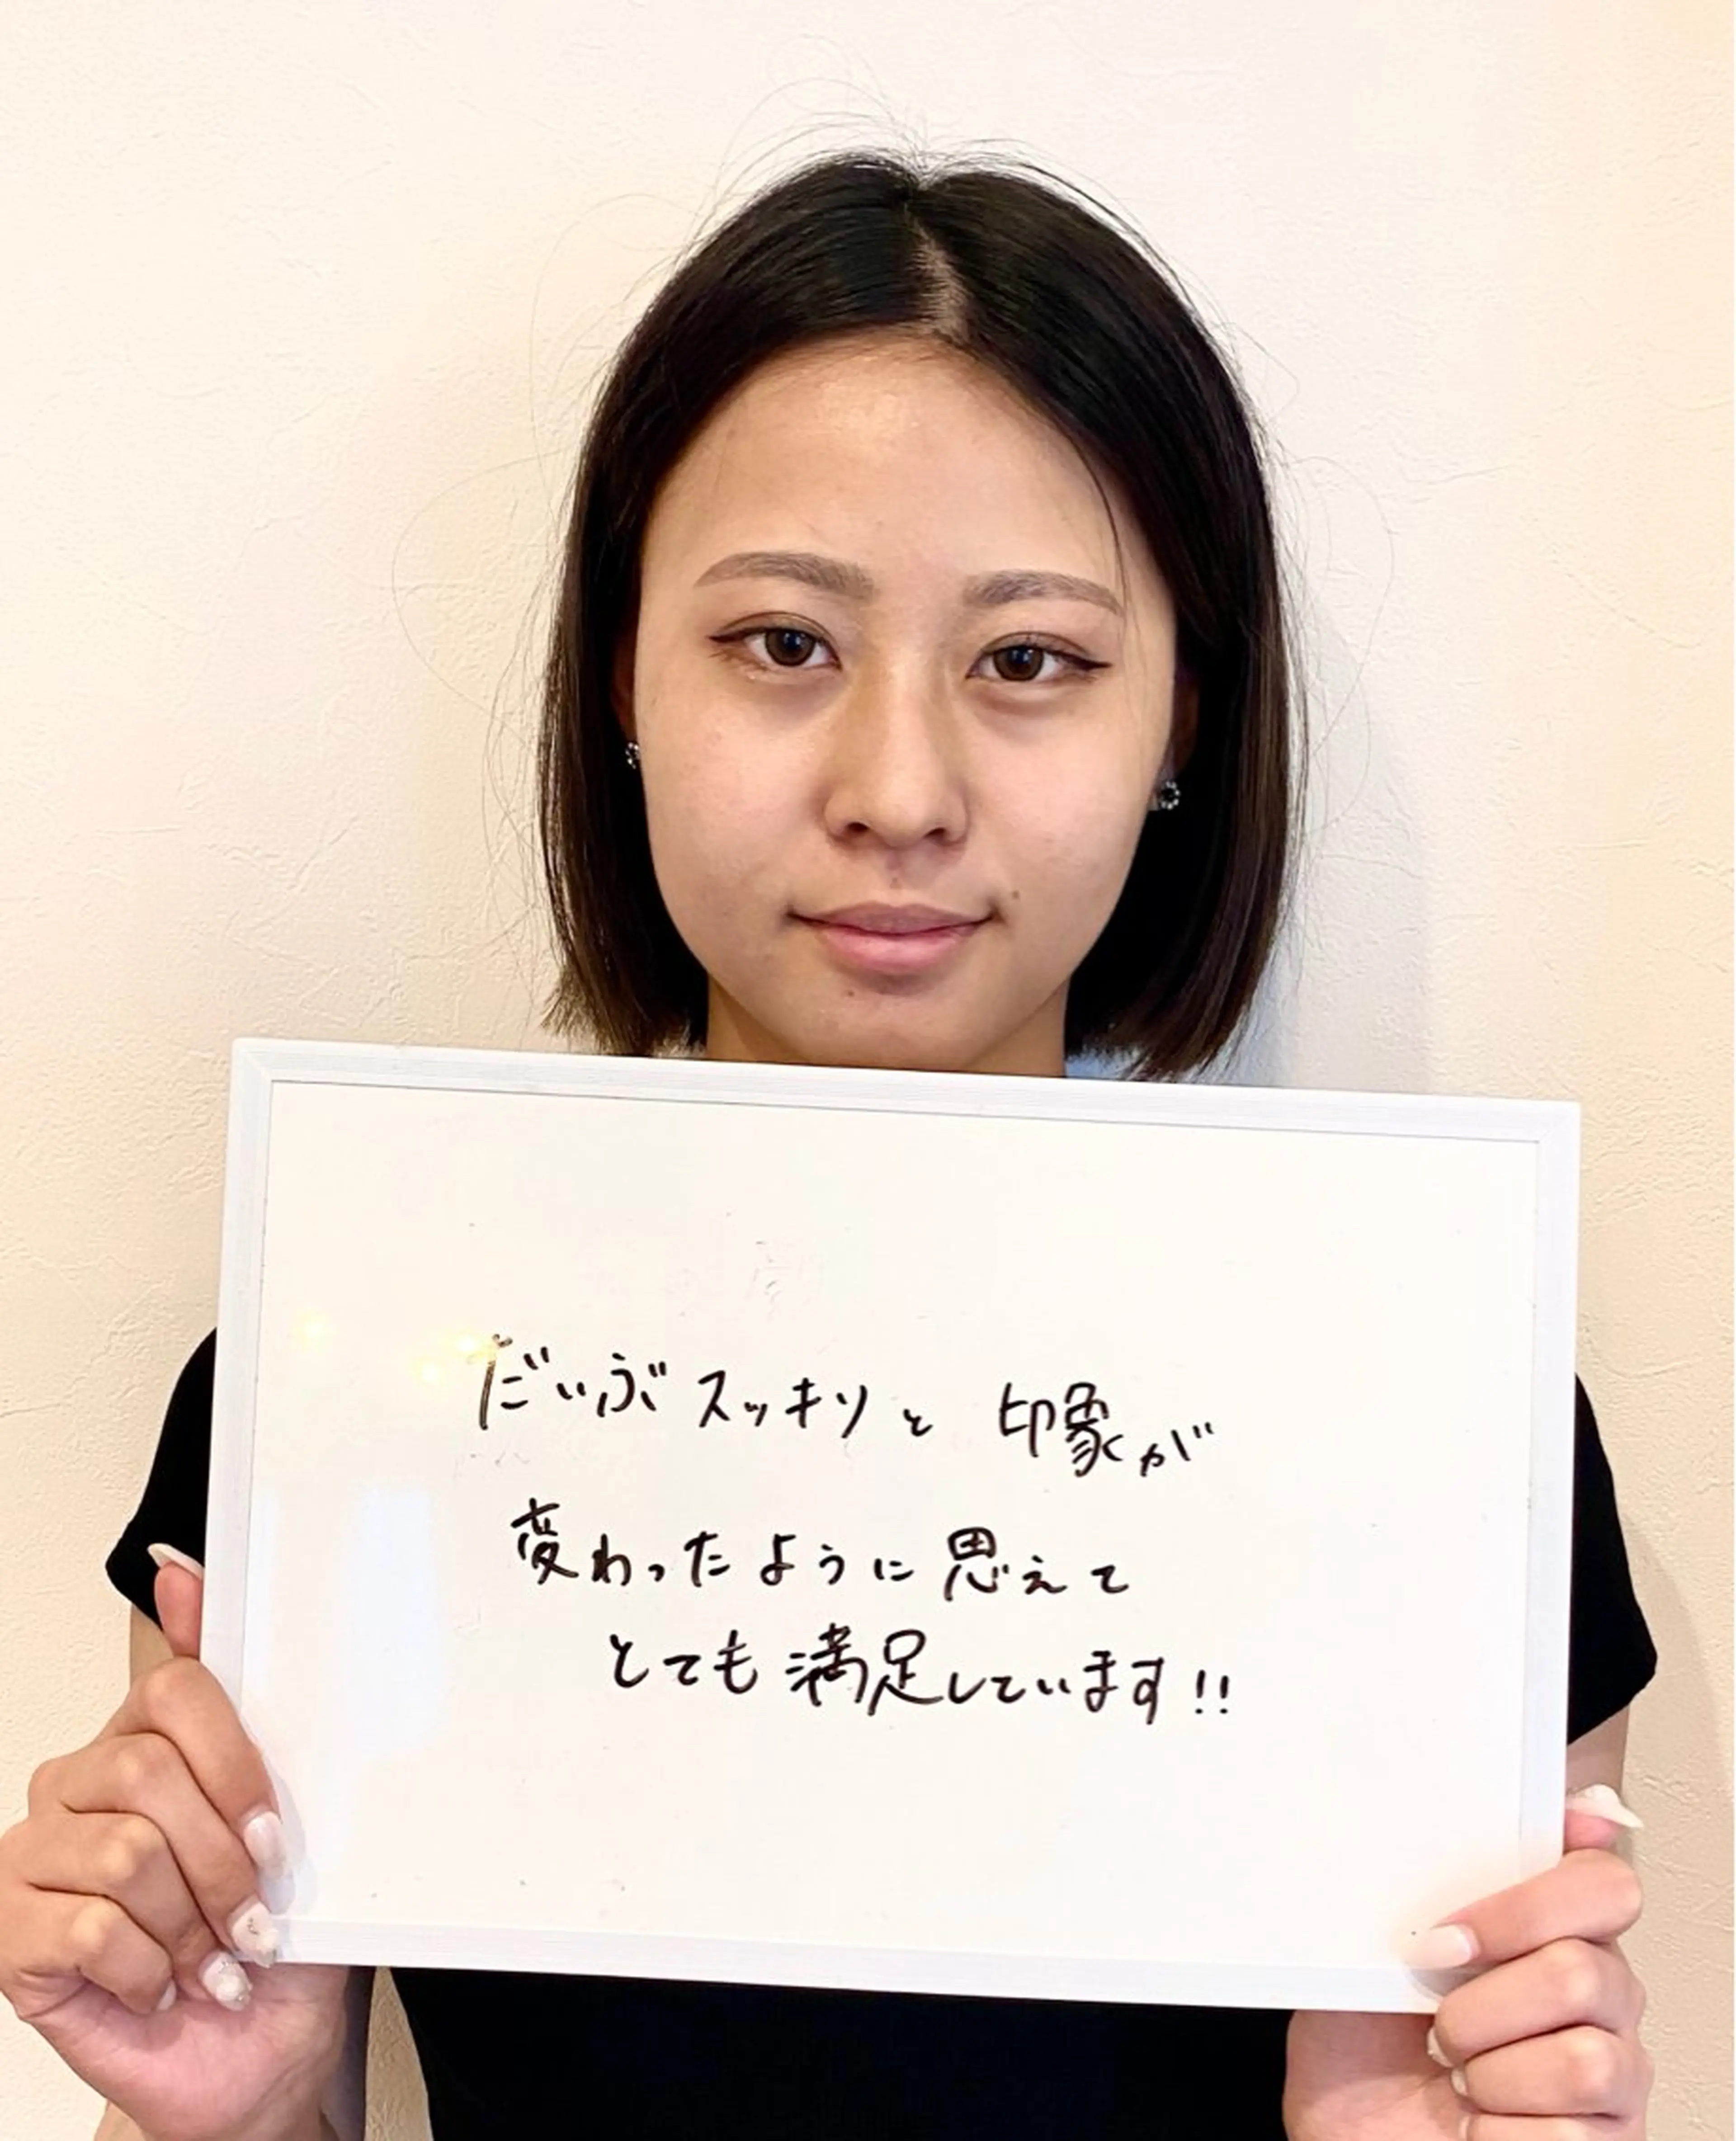 だいぶスッキリと 印象が
変わったように思えて
とても満足しています!!